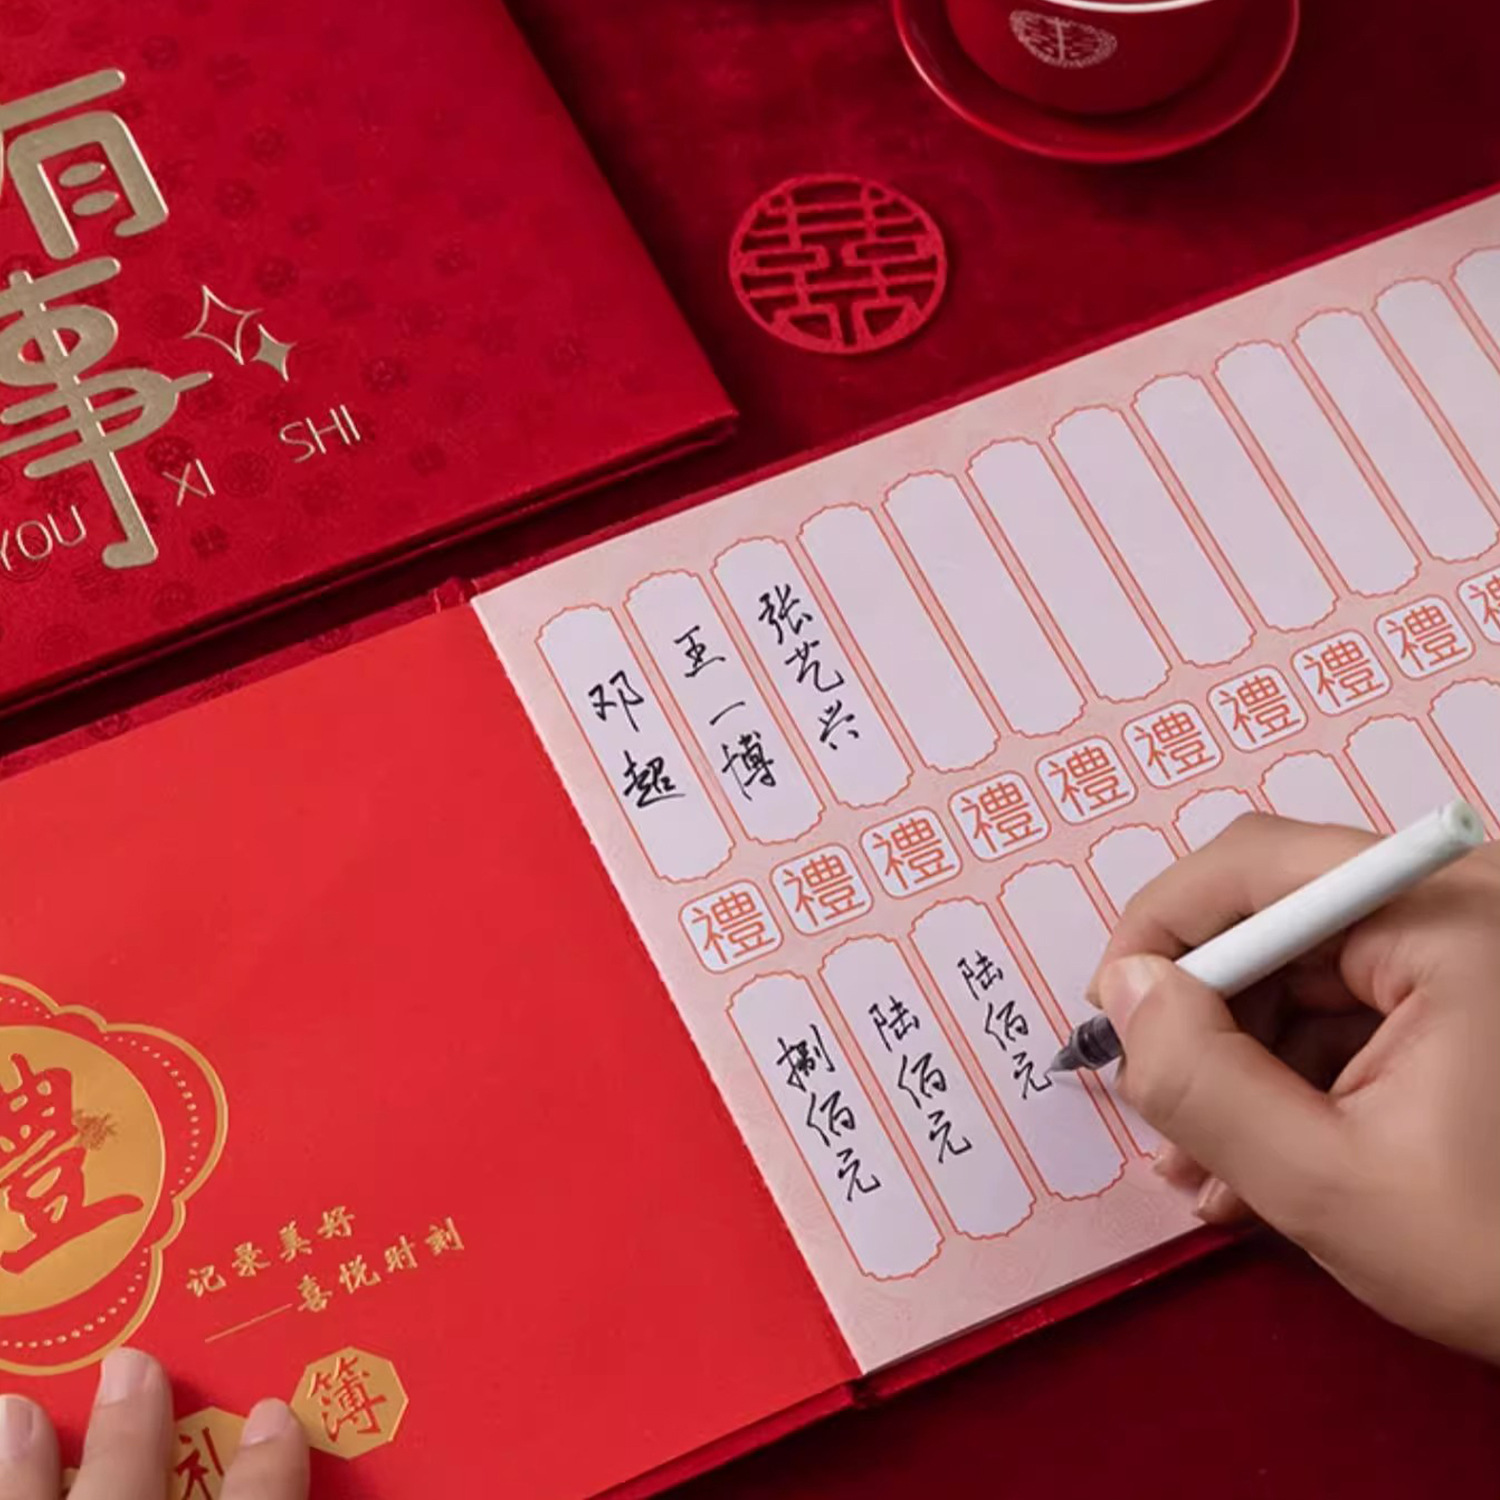 有
事
YOU XI SHI
囍
邓超
王一博
张艺兴
禮 禮 禮 禮 禮 禮 禮 禮 禮
捌佰元
陆佰元
陆佰元
禮
记录美好
——喜悦时刻
礼簿